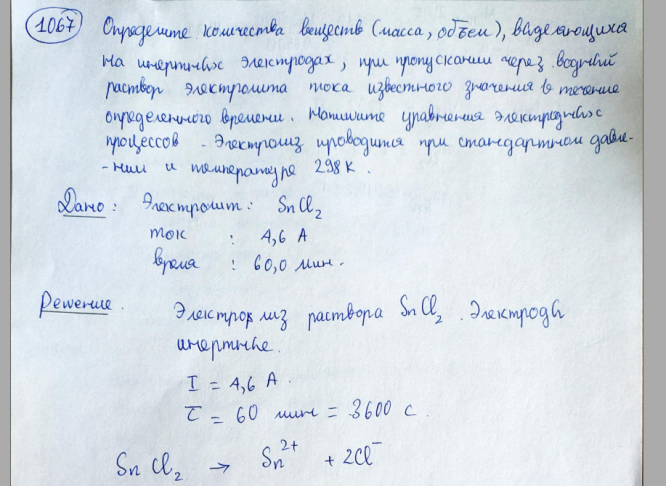 1067 Определите количества веществ (масса, объем), выделяющихся
на инертных электродах, при пропускании через водный
раствор электролита тока известного значения в течение
определенного времени. Напишите уравнения электродных
процессов. Электролиз проводится при стандартном давле-
-нии и температуре 298 К.
Дано: Электролит: SnCl₂
ток : 4,6 А
время : 60,0 мин.
Решение. Электролиз раствора SnCl₂. Электроды
инертные.
I = 4,6 А.
τ = 60 мин = 3600 с.
SnCl₂ → Sn²⁺ + 2Cl⁻